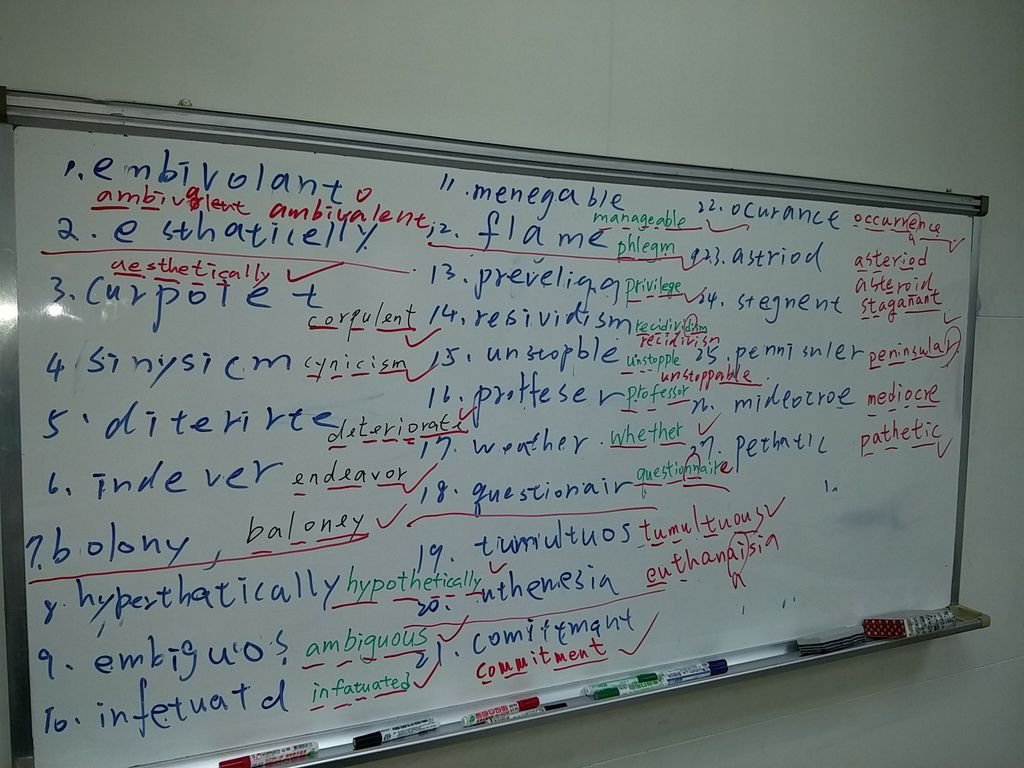 1. embivolant
ambivalent ambivalent
2. esthatically
aesthetically
3. Curpolet
corpulent
4 Sinysicm cynicism
5. diterirte
deteriorate
6. indever endeavor
7. bolony, baloney
8. hyperthatically hypothetically
9. embiguos ambiguous
10. infetuatd infatuated
11. menegable
manageable
12. flame
phlegm
13. preveligg privilege
14. residivism recidividsm
recidivism
15. unstopble unstopple
unstoppable
16. proffeser professor
17. weather whether
18. questionair questionnaire
19. tumultuos tumultuous
20. uthenesia euthanaisia
a
21. comittmant
commitment
22. ocurance occurrence
23. astriod asteriod
asteroid
24. stegnent stagnant
25. pennisuler peninsular
26. mideocroe mediocre
27. pethatic pathetic